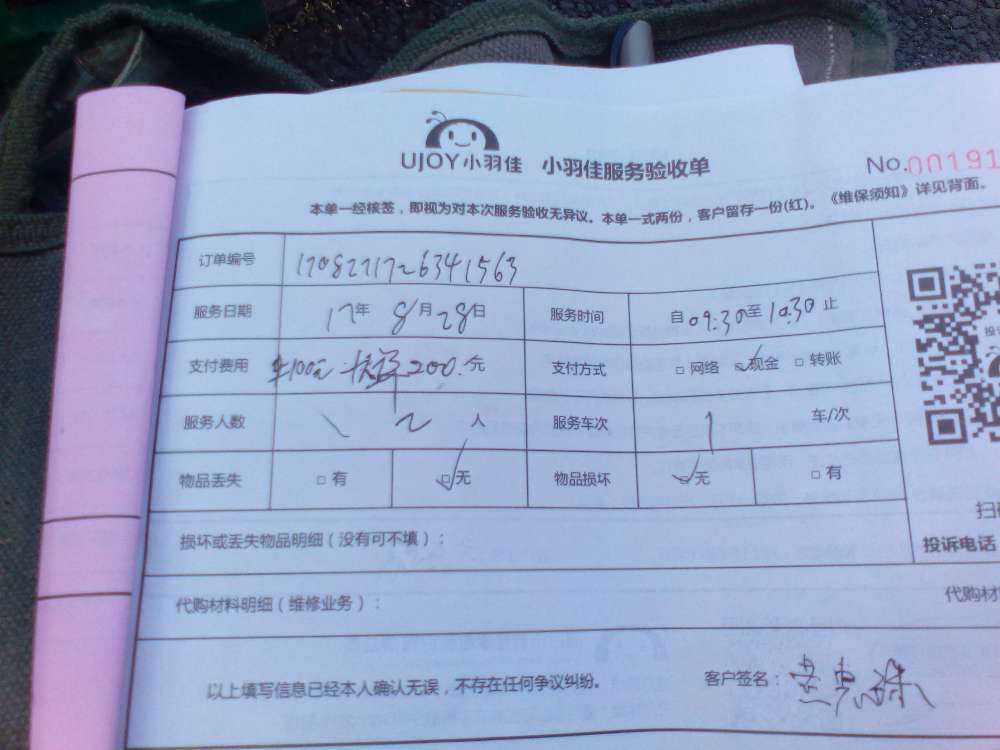 UJOY小羽佳 小羽佳服务验收单
No.00191
本单一经核签，即视为对本次服务验收无异议。本单一式两份，客户留存一份(红)。《维保须知》详见背面。
订单编号 1708271726341563
服务日期 17年 8月28日 服务时间 自09:30至10:30止
支付费用 车100元 200.元 支付方式 □网络 ☑现金 □转账
服务人数 2人 服务车次 1 车/次
物品丢失 □有 ☑无 物品损坏 ☑无 □有
损坏或丢失物品明细（没有可不填）：
投诉电话
代购材料明细（维修业务）： 代购材
以上填写信息已经本人确认无误，不存在任何争议纠纷。 客户签名：